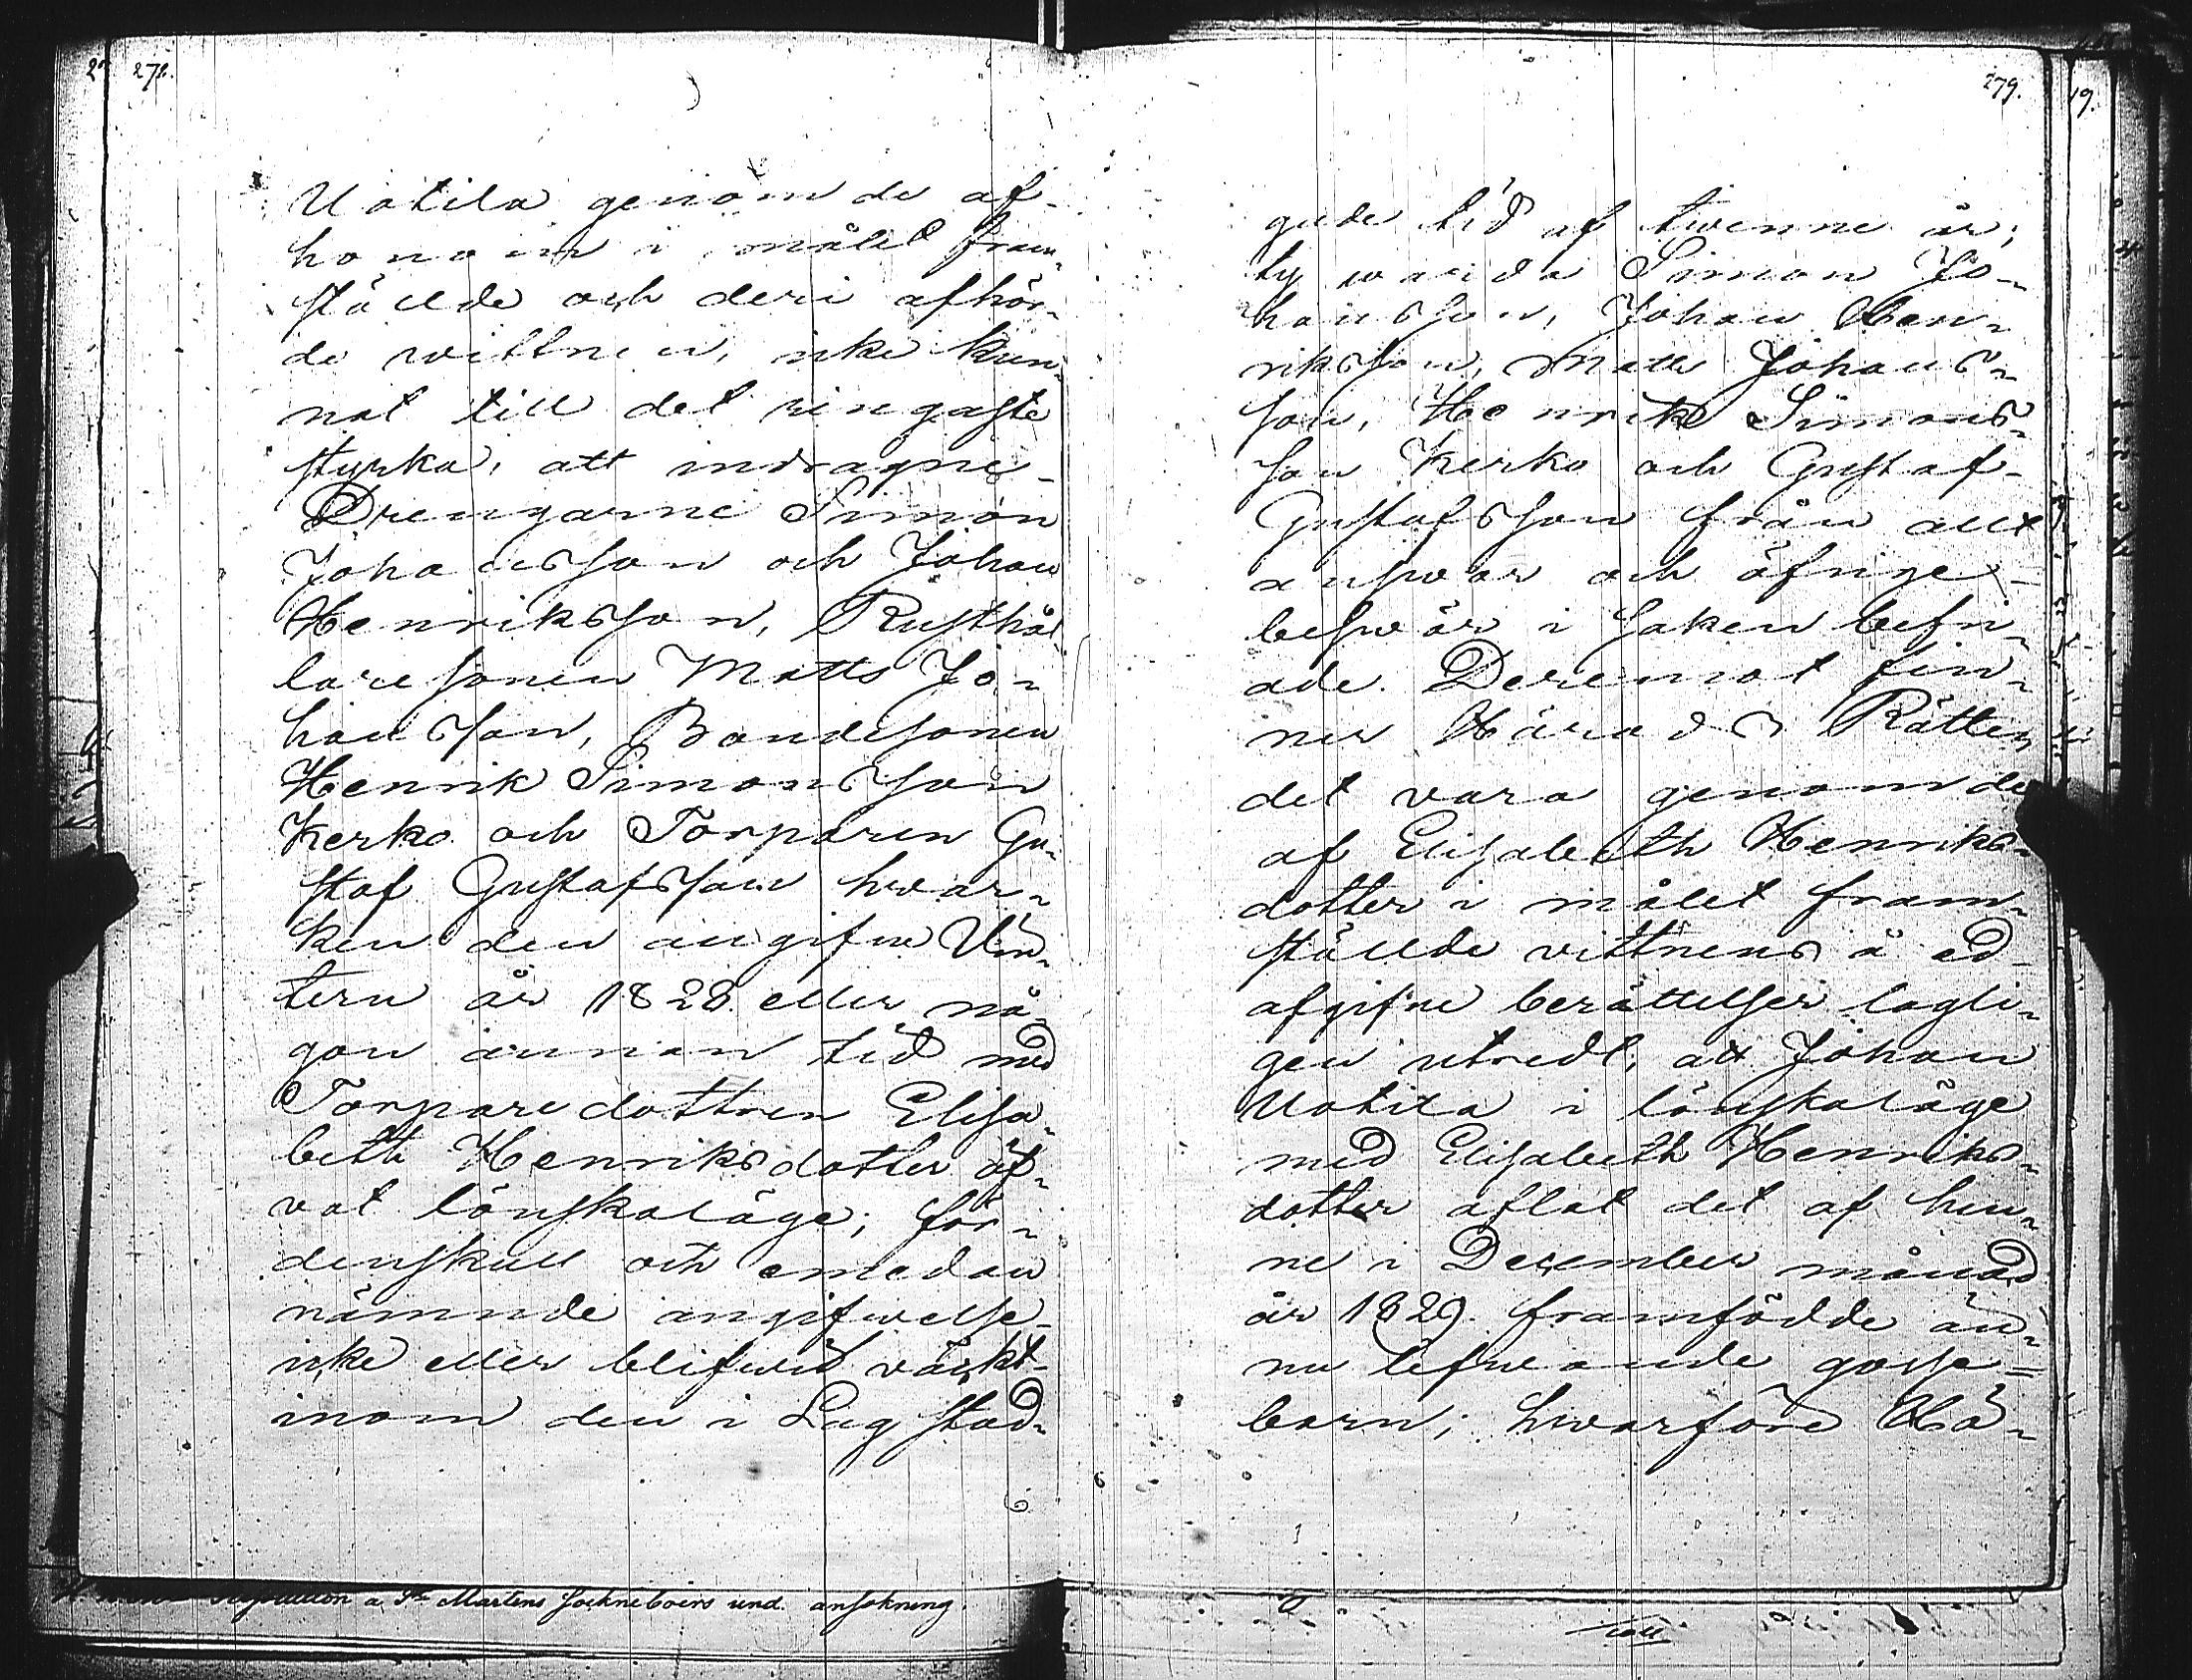 278.
Uotila genom de af
honom i målet fram¬
ställde och deri afhör¬
de wittnen, icke kun¬
nat till det ringaste
styrka, att indragne
Drengarne Simon
Johansson och Johan
Henriksson, Rusthål¬
laresonen Matts Jo¬
hansson, Bondesonen
Henrik Simonsson
Kerko och Torparen Gu¬
staf Gustafsson hwar¬
ken den angifne Vin¬
tern år 1828 eller nå¬
gon annan tid med
Torparedottren Elisa¬
beth Henriksdotter öf¬
vat lönskaläge; för¬
denskull och emedan
nämnde angifwelse
icke eller blifwit väckt
inom den i Lag stad¬
279.
gade tid af twenne år;
ty warda Simon Jo¬
hansson, Johan Hen¬
riksson, Matts Johans¬
son, Henrik Simons¬
son Kerko och Gustaf
Gustafsson från allt
answar och öfrige
beswär i saken befri¬
ade. Deremot fin¬
ner Härads Rätten
det vara genom de
af Elisabeth Henriks¬
dotter i målet fram¬
ställde vittnens å ed
afgifne berättelser lagli¬
gen utredt, att Johan
Uotila i lönskaläge
med Elisabeth Henriks¬
dotter aflat det af hen¬
ne i December månad
år 1829 framfödde än¬
nu lefwande gosse=
barn; hwarföre Hä¬
19.
Resolution å S:t Martens Sockneboers und. ansökning.